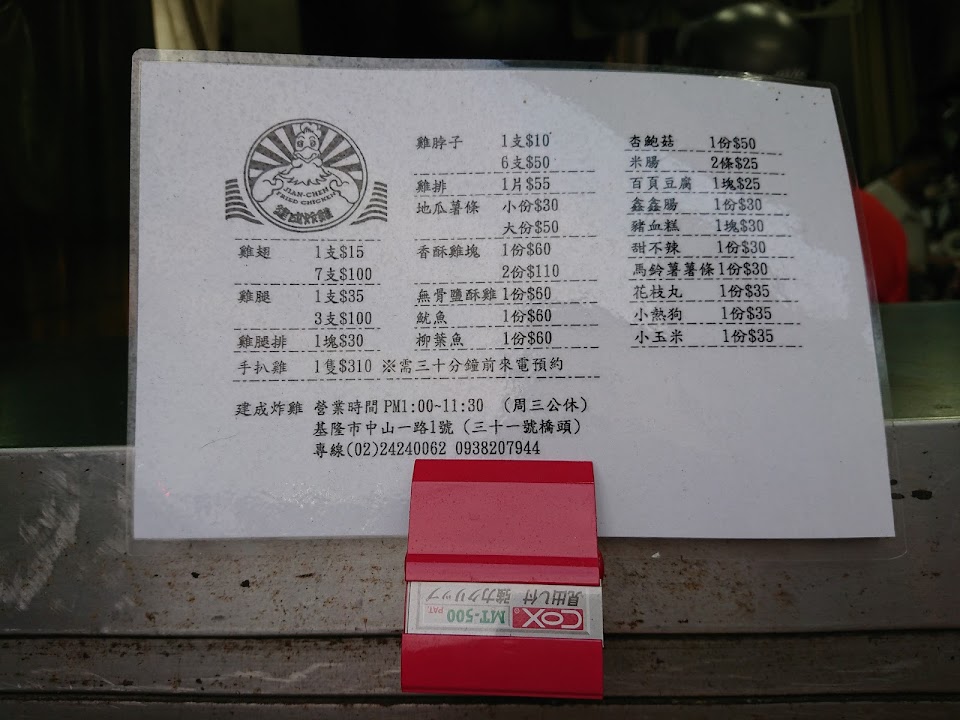 JIAN-CHEN
FRIED CHICKEN
建成炸雞
雞翅 1支$15
7支$100
雞腿 1支$35
3支$100
雞腿排 1塊$30
手扒雞 1隻$310 ※需三十分鐘前來電預約
雞脖子 1支$10
6支$50
雞排 1片$55
地瓜薯條 小份$30
大份$50
香酥雞塊 1份$60
2份$110
無骨鹽酥雞 1份$60
魷魚 1份$60
柳葉魚 1份$60
杏鮑菇 1份$50
米腸 2條$25
百頁豆腐 1塊$25
鑫鑫腸 1份$30
豬血糕 1塊$30
甜不辣 1份$30
馬鈴薯薯條 1份$30
花枝丸 1份$35
小熱狗 1份$35
小玉米 1份$35
建成炸雞 營業時間PM1:00~11:30 (周三公休)
基隆市中山一路1號 (三十一號橋頭)
專線(02)24240062 0938207944
COX® MT-500 PAT.
見出し付 強力クリップ